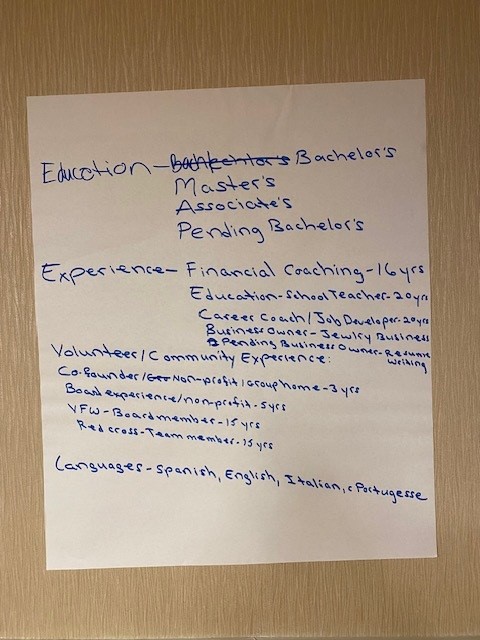 Education - Bachelor's
Master's
Associate's
Pending Bachelor's
Experience - Financial Coaching - 16 yrs
Education - School Teacher - 20 yrs
Career Coach / Job Developer - 20 yrs
Business Owner - Jewlry Business
Pending Business Owner - Resume
Writing
Volunteer / Community Experience:
Co-founder / Non-profit / Group home - 3 yrs
Board experience / non-profit - 5 yrs
VFW - Board member - 15 yrs
Red cross - Team member - 15 yrs
Languages - Spanish, English, Italian, Portugesse